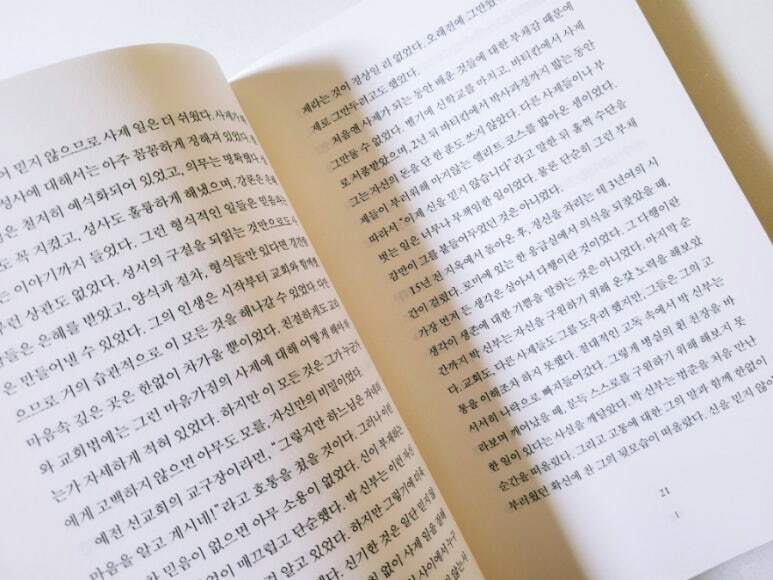 어 믿지 않으므로 사제 일은 더 쉬웠다. 사제가
성사에 대해서는 아주 꼼꼼하게 정해져 있었다.
은 철저히 예식화되어 있었고, 의무는 명확했다.
도 꼭 지켰고, 성사도 훌륭하게 해냈으며, 강론은
는 이야기까지 들었다. 그런 형식적인 일들은 믿음과는
무런 상관도 없었다. 성서의 구절을 되읽는 것만으로도
들은 은혜를 받았고, 양식과 절차, 형식들만 있다면 경건함
은 만들어낼 수 있었다. 그의 인생은 시작부터 교회와 함께
으므로 거의 습관적으로 이 모든 것을 해나갈 수 있었다.
마음속 깊은 곳은 한없이 차가울 뿐이었다. 친절하게도 교리
와 교회법에는 그런 마음가짐의 사제에 대해 어떻게 해야 하
는가 자세하게 적혀 있었다. 하지만 이 모든 것은 그가 누군가
에게 고백하지 않으면 아무도 모를, 자신만의 비밀이었다.
예전 선교회의 교구장이라면, “그렇지만 하느님은 자네의
마음을 알고 계시네!”라고 호통을 쳤을 것이다. 그러나 이런
한 믿음이 없으면 아무 소용이 없었다. 신이 부재하는
없이 매끄럽고 단순했다. 박 신부는 이런 자신
알고 있었다. 하지만 그렇기에 더욱
신기한 것은 일단 믿지 않
없이 사제 일을 잘해
제라는 것이 정상일 리 없었다. 오래전에 그만뒀
제로 그만두려고도 했었다.
처음엔 사제가 되는 동안 배운 것들에 대한 부채감 때문에
그만둘 수 없었다. 벨기에 신학교를 마치고, 바티칸에서 사제
로 서품받았으며, 2년 뒤 바티칸에서 박사과정까지 밟는 동안
그는 자신의 돈을 단 한 푼도 쓰지 않았다. 다른 사제들이나 부
제들이 부러워해 마지않는 엘리트 코스를 밟아온 생이었다.
따라서 “이제 신을 믿지 않습니다”라고 말한 뒤 훌쩍 수단을
벗는 일은 너무나 무책임한 일이었다. 물론 단순히 그런 부채
감만이 그를 붙들어두었던 것은 아니었다.
15년 전 지옥에서 돌아온 후, 정신을 차리는 데 3년여의 시
간이 걸렸다. 로마에 있는 한 응급실에서 의식을 되찾았을 때,
가장 먼저 든 생각은 살아서 다행이란 것이었다. 그 다행이란
생각이 생존에 대한 기쁨을 말하는 것은 아니었다. 마지막 순
간까지 박 신부는 자신을 구원하기 위해 온갖 노력을 해보았
다. 교회도, 다른 사제들도 그를 도우려 했지만, 그들은 그의 고
통을 이해조차 하지 못했다. 절대적인 고독 속에서 박 신부는
서서히 나락으로 빠져들어갔다. 그렇게 병실의 흰 천장을 바
라보며 깨어났을 때, 문득 스스로를 구원하기 위해 해보지 못
한 일이 있다는 사실을 깨달았다. 박 신부는 범준을 처음 만난
순간을 떠올렸다. 그리고 고통에 대한 그의 말과 함께 한없이
부러웠던 확신에 찬 그 뒷모습이 떠올랐다. 신을 믿지 않아
21
1